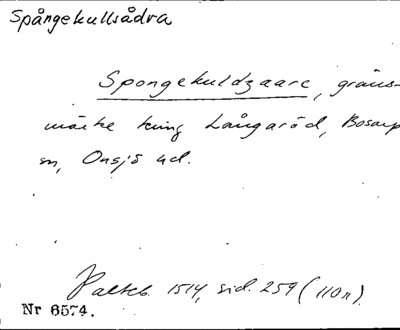 Spångekullsådra
Spongekuldzaare, gräns-
märke kring Långaröd, Bosarp
sn, Onsjö hd.
Paltsb. 1514, sid. 259 (110n).
Nr 6574.